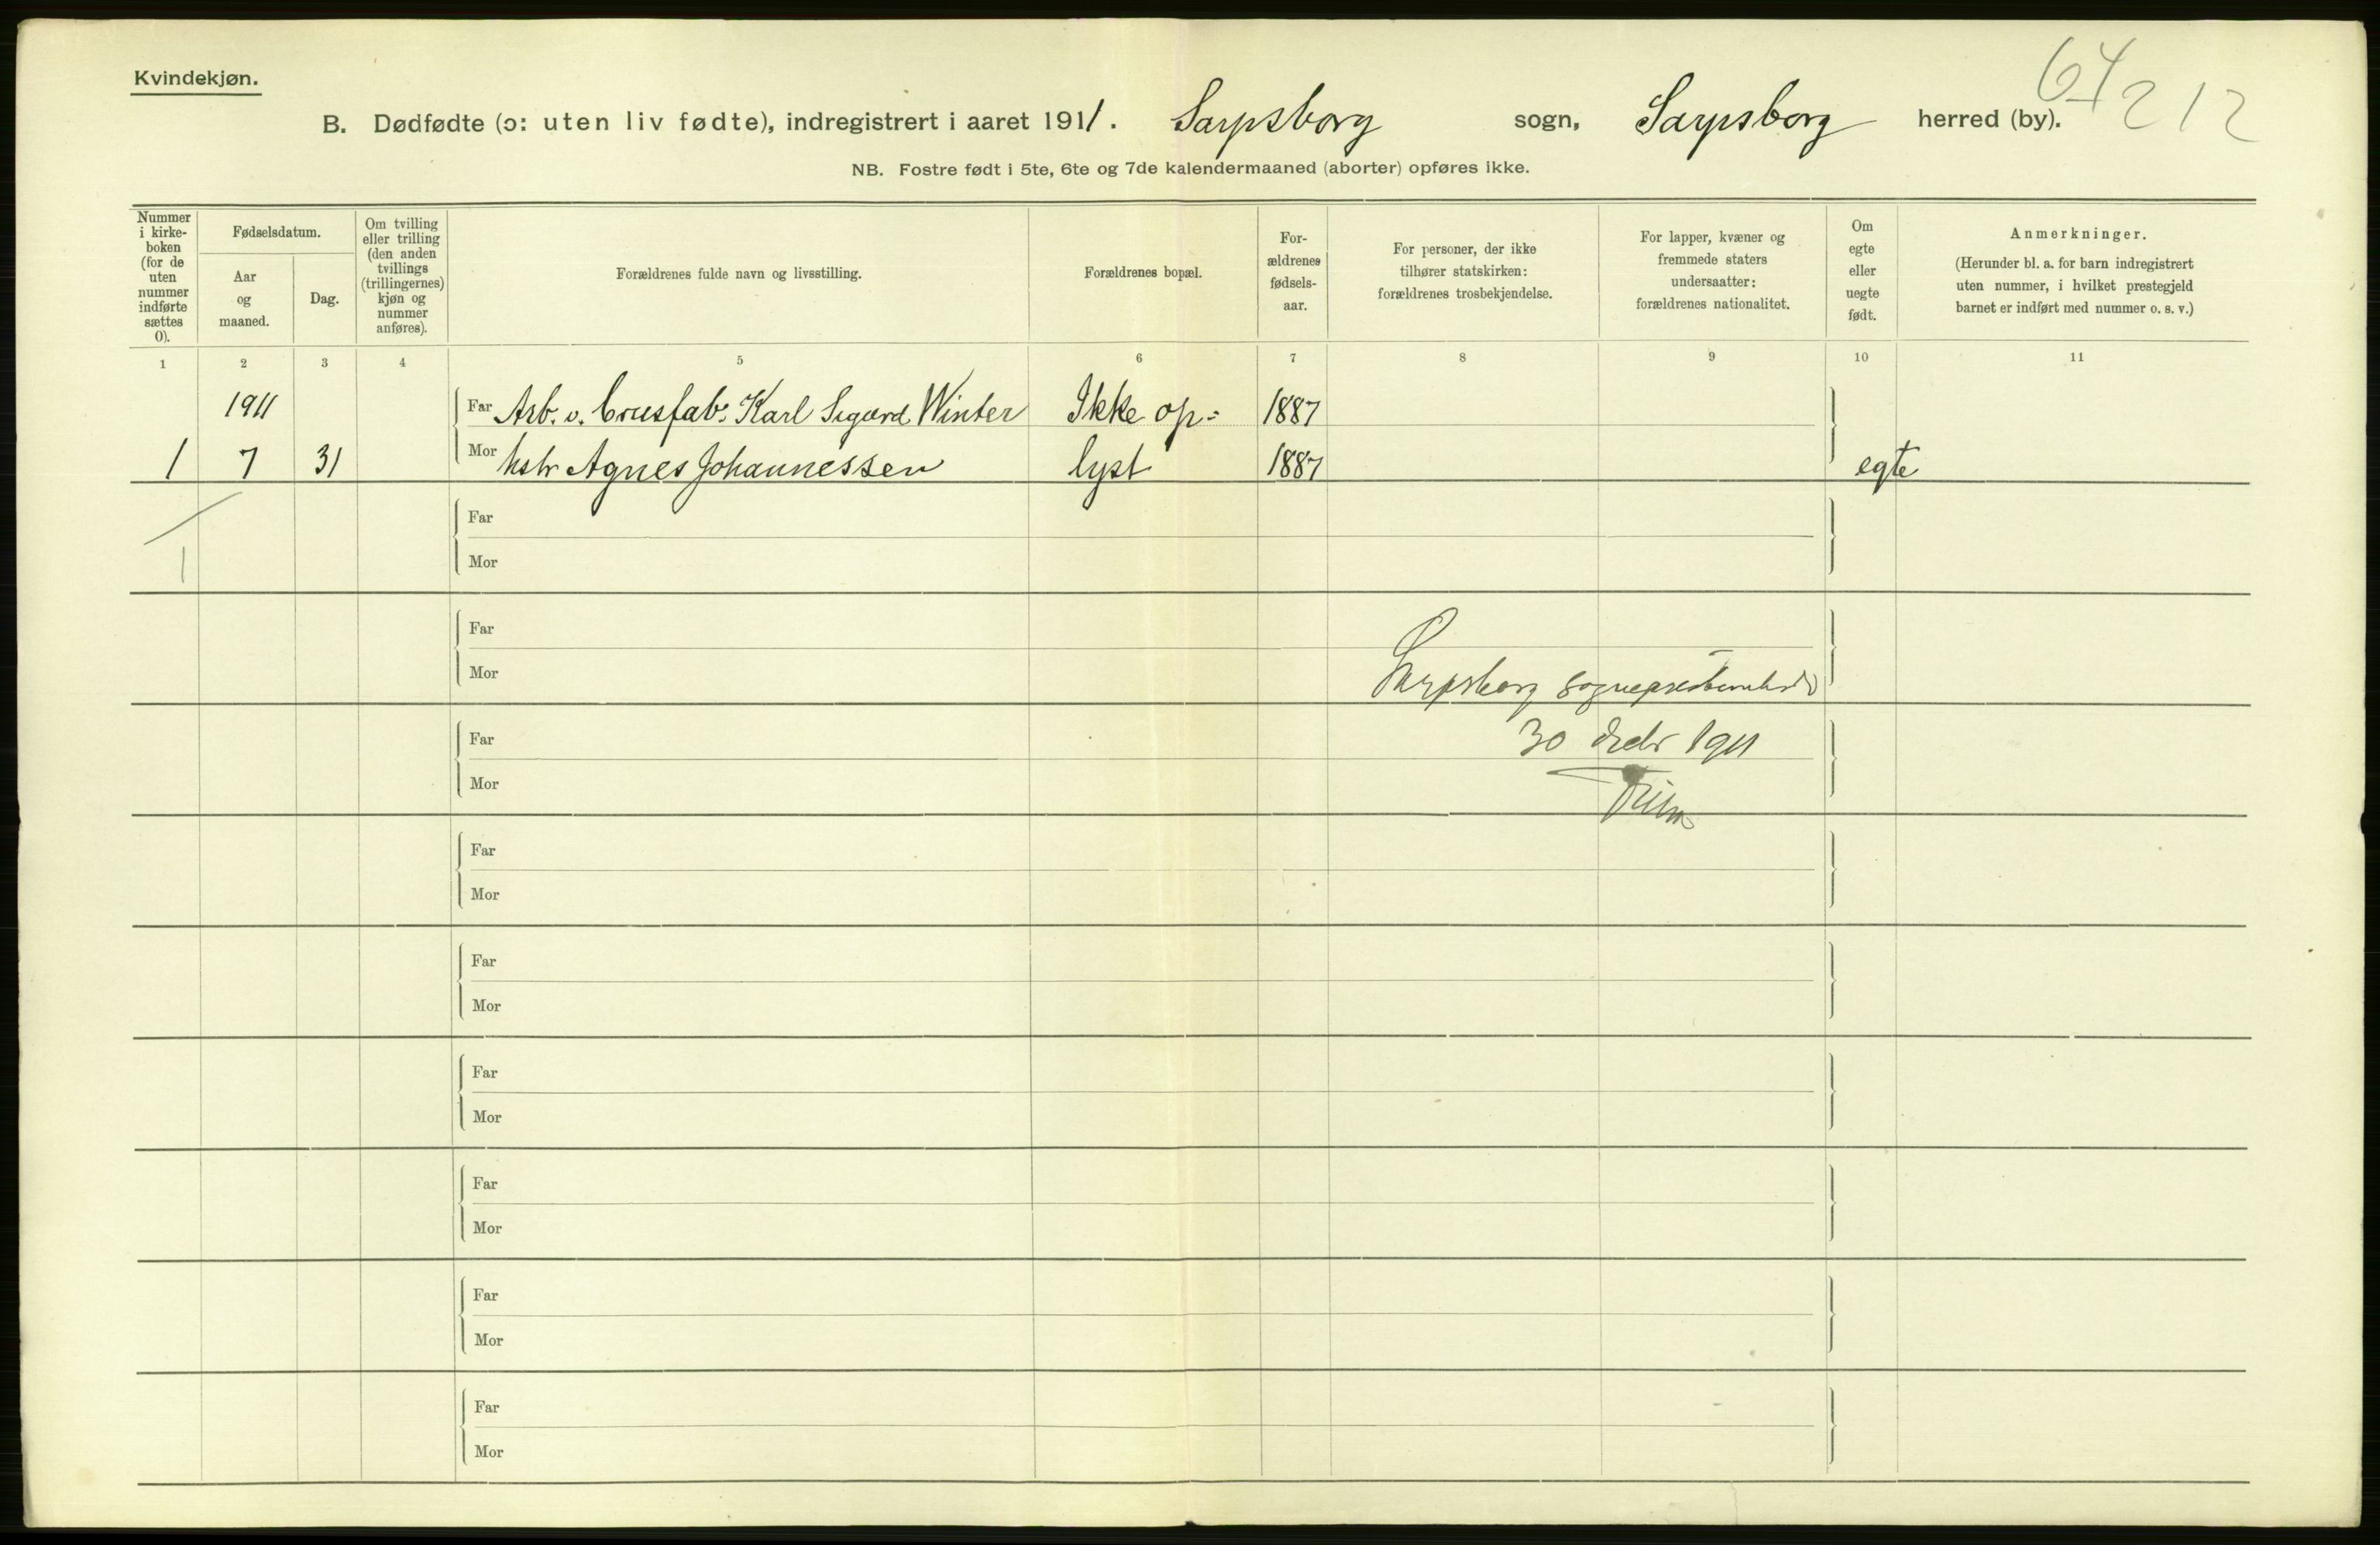 Kvindekjøn.
64
212
B. Dødfødte (ɔ: uten liv fødte), indregistrert i aaret 1911. Sarpsborg sogn, Sarpsborg herred (by).
NB. Fostre født i 5te, 6te og 7de kalendermaaned (aborter) opføres ikke.
Nummer
i kirke-
boken
(for de
uten
nummer
indførte
sættes
0).
Fødselsdatum.
Aar
og
maaned.
Dag.
Om tvilling
eller trilling
(den anden
tvillings
(trillingernes)
kjøn og
nummer
anføres).
Forældrenes fulde navn og livsstilling.
Forældrenes bopæl.
For-
ældrenes
fødsels-
aar.
For personer, der ikke
tilhører statskirken:
forældrenes trosbekjendelse.
For lapper, kvæner og
fremmede staters
undersaatter:
forældrenes nationalitet.
Om
egte
eller
uegte
født.
Anmerkninger.
(Herunder bl. a. for barn indregistrert
uten nummer, i hvilket prestegjeld
barnet er indført med nummer o. s. v.)
1 2 3 4 5 6 7 8 9 10 11
1911 Far Arb. v. Karl Sigurd Winter Ikke op= 1887
1 7 31 Mor hstr Agnes Johannessen lyst 1887 egte
Far
1 Mor
Far
Mor Sarpsborg
Far 30 1911
Mor
Far
Mor
Far
Mor
Far
Mor
Far
Mor
Far
Mor
Far
Mor